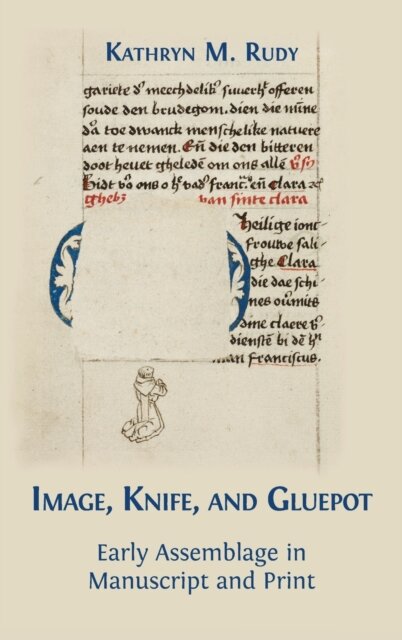 KATHRYN M. RUDY
gariete dͦ meechdelikͦ suuerhͭ offeren
soude den brudegom. dien die mīne
dͣa toe dwanck menschelike natuere
aen te nemen. En̄ die den bitteren
doot heuet gheledē om ons allē
Bidt vͦo ons o hͭ franc en̄ Clara
ghebꝫ van sinte clara
Heilige ionc-
frouwe sali-
ghe Clara
die dae schi-
nes oūmits
dine claere
dienstē bi dē
man franciscus.
IMAGE, KNIFE, AND GLUEPOT
Early Assemblage in
Manuscript and Print